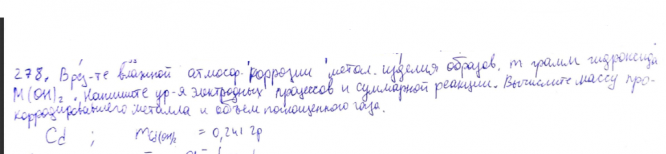 278. В рез-те влажной атмосф. коррозии метал. изделия образов. m грамм гидроксида
M(OH)₂. Напишите ур-я электродных процессов и суммарной реакции. Вычислите массу про-
корродировавшего металла и объем поглощенного газа.
Cd ; m Cd(OH)₂ = 0,241 гр